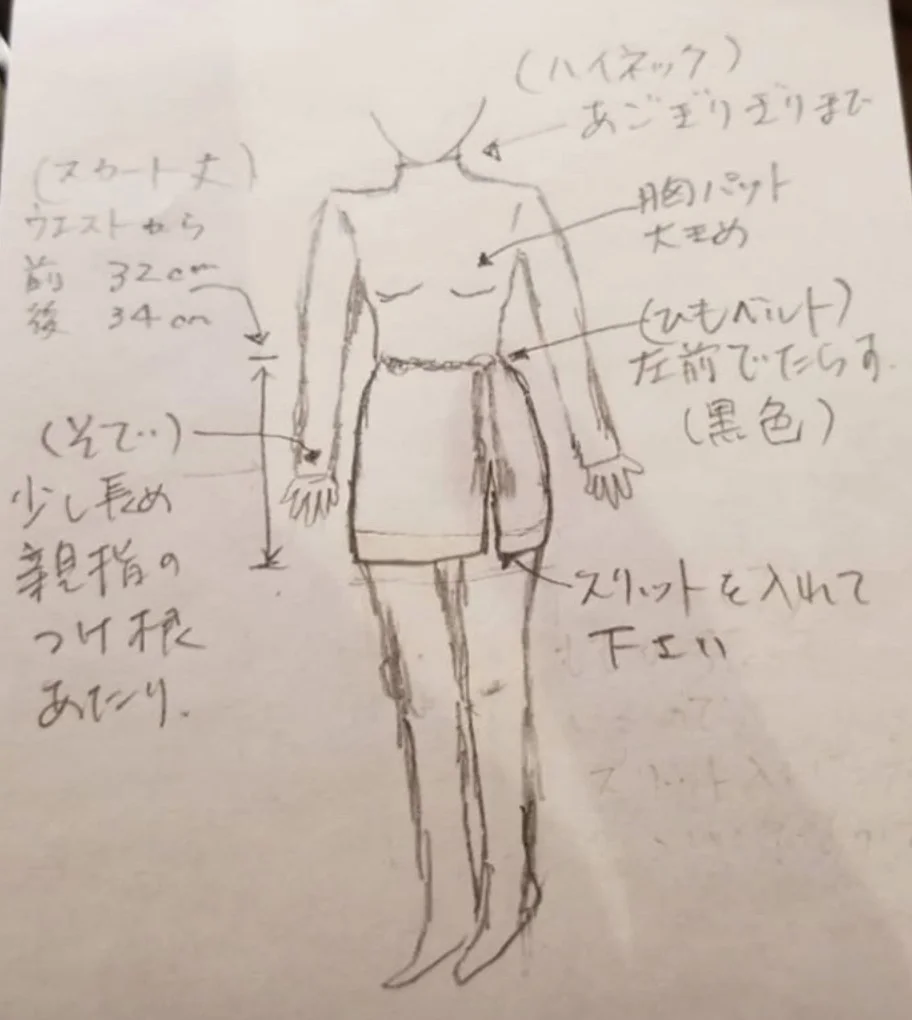 (ハイネック)
あごぎりぎりまで
(スカート丈)
ウエストから
前 32cm
後 34cm
胸パット
大きめ
(ひもベルト)
左前でたらす.
(黒色)
(そで‥)
少し長め
親指の
つけ根
あたり.
スリットを入れて
下さい